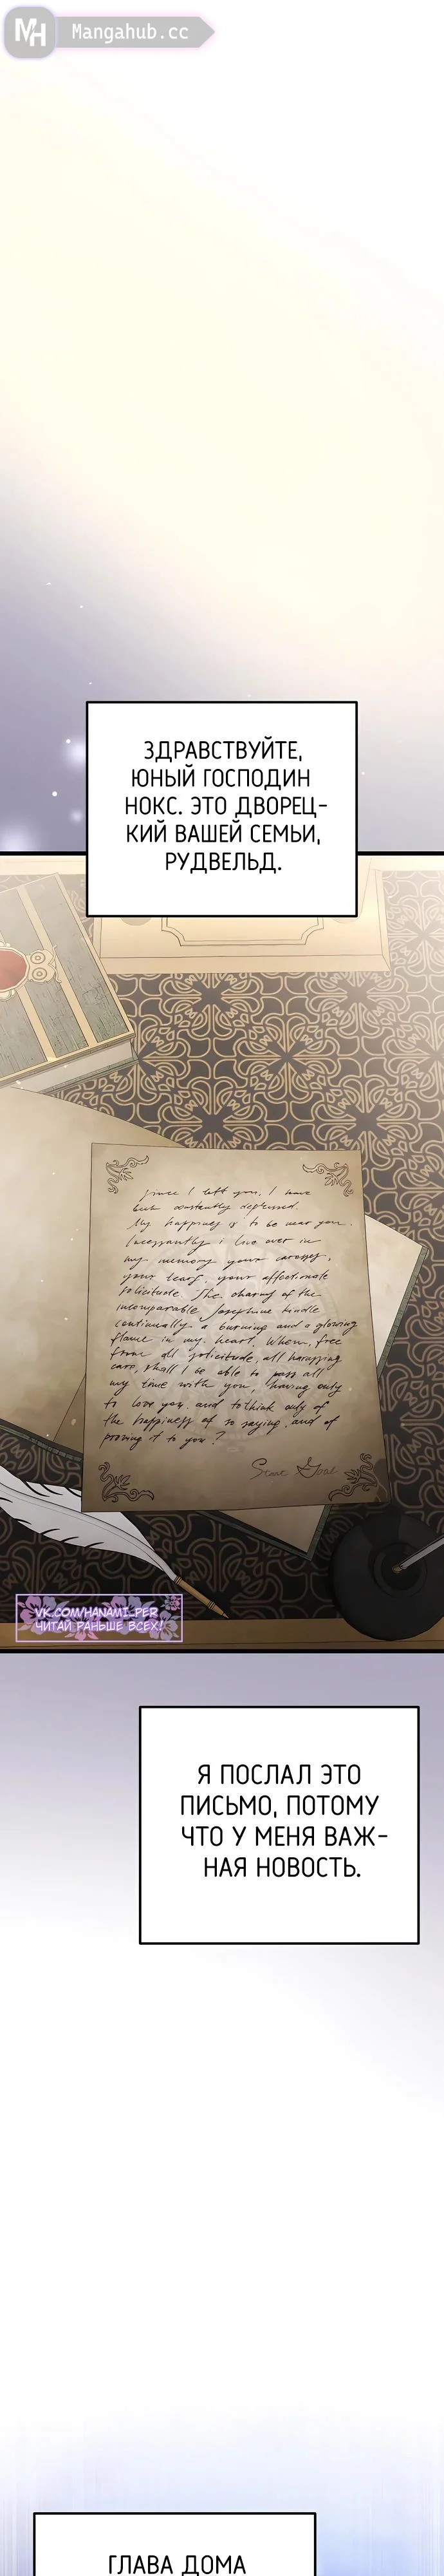 MH Mangahub.cc
ЗДРАВСТВУЙТЕ,
ЮНЫЙ ГОСПОДИН
НОКС. ЭТО ДВОРЕЦ-
КИЙ ВАШЕЙ СЕМЬИ,
РУДВЕЛЬД.
Since I left you, I have
been constantly depressed.
My happiness is to be near you.
Incessantly i live over in
my memory your caresses,
your tears, your affectionate
solicitude. The charms of the
incomparable Josephine kindle
continually a burning and a glowing
flame in my heart. When, free
from all solicitude, all harassing
care, shall I be able to pass all
my time with you, having only
to love you, and to think only of
the happiness of so saying, and of
proving it to you?
VK.COM/HANAMI_PER
ЧИТАЙ РАНЬШЕ ВСЕХ!
Я ПОСЛАЛ ЭТО
ПИСЬМО, ПОТОМУ
ЧТО У МЕНЯ ВАЖ-
НАЯ НОВОСТЬ.
ГЛАВА ДОМА